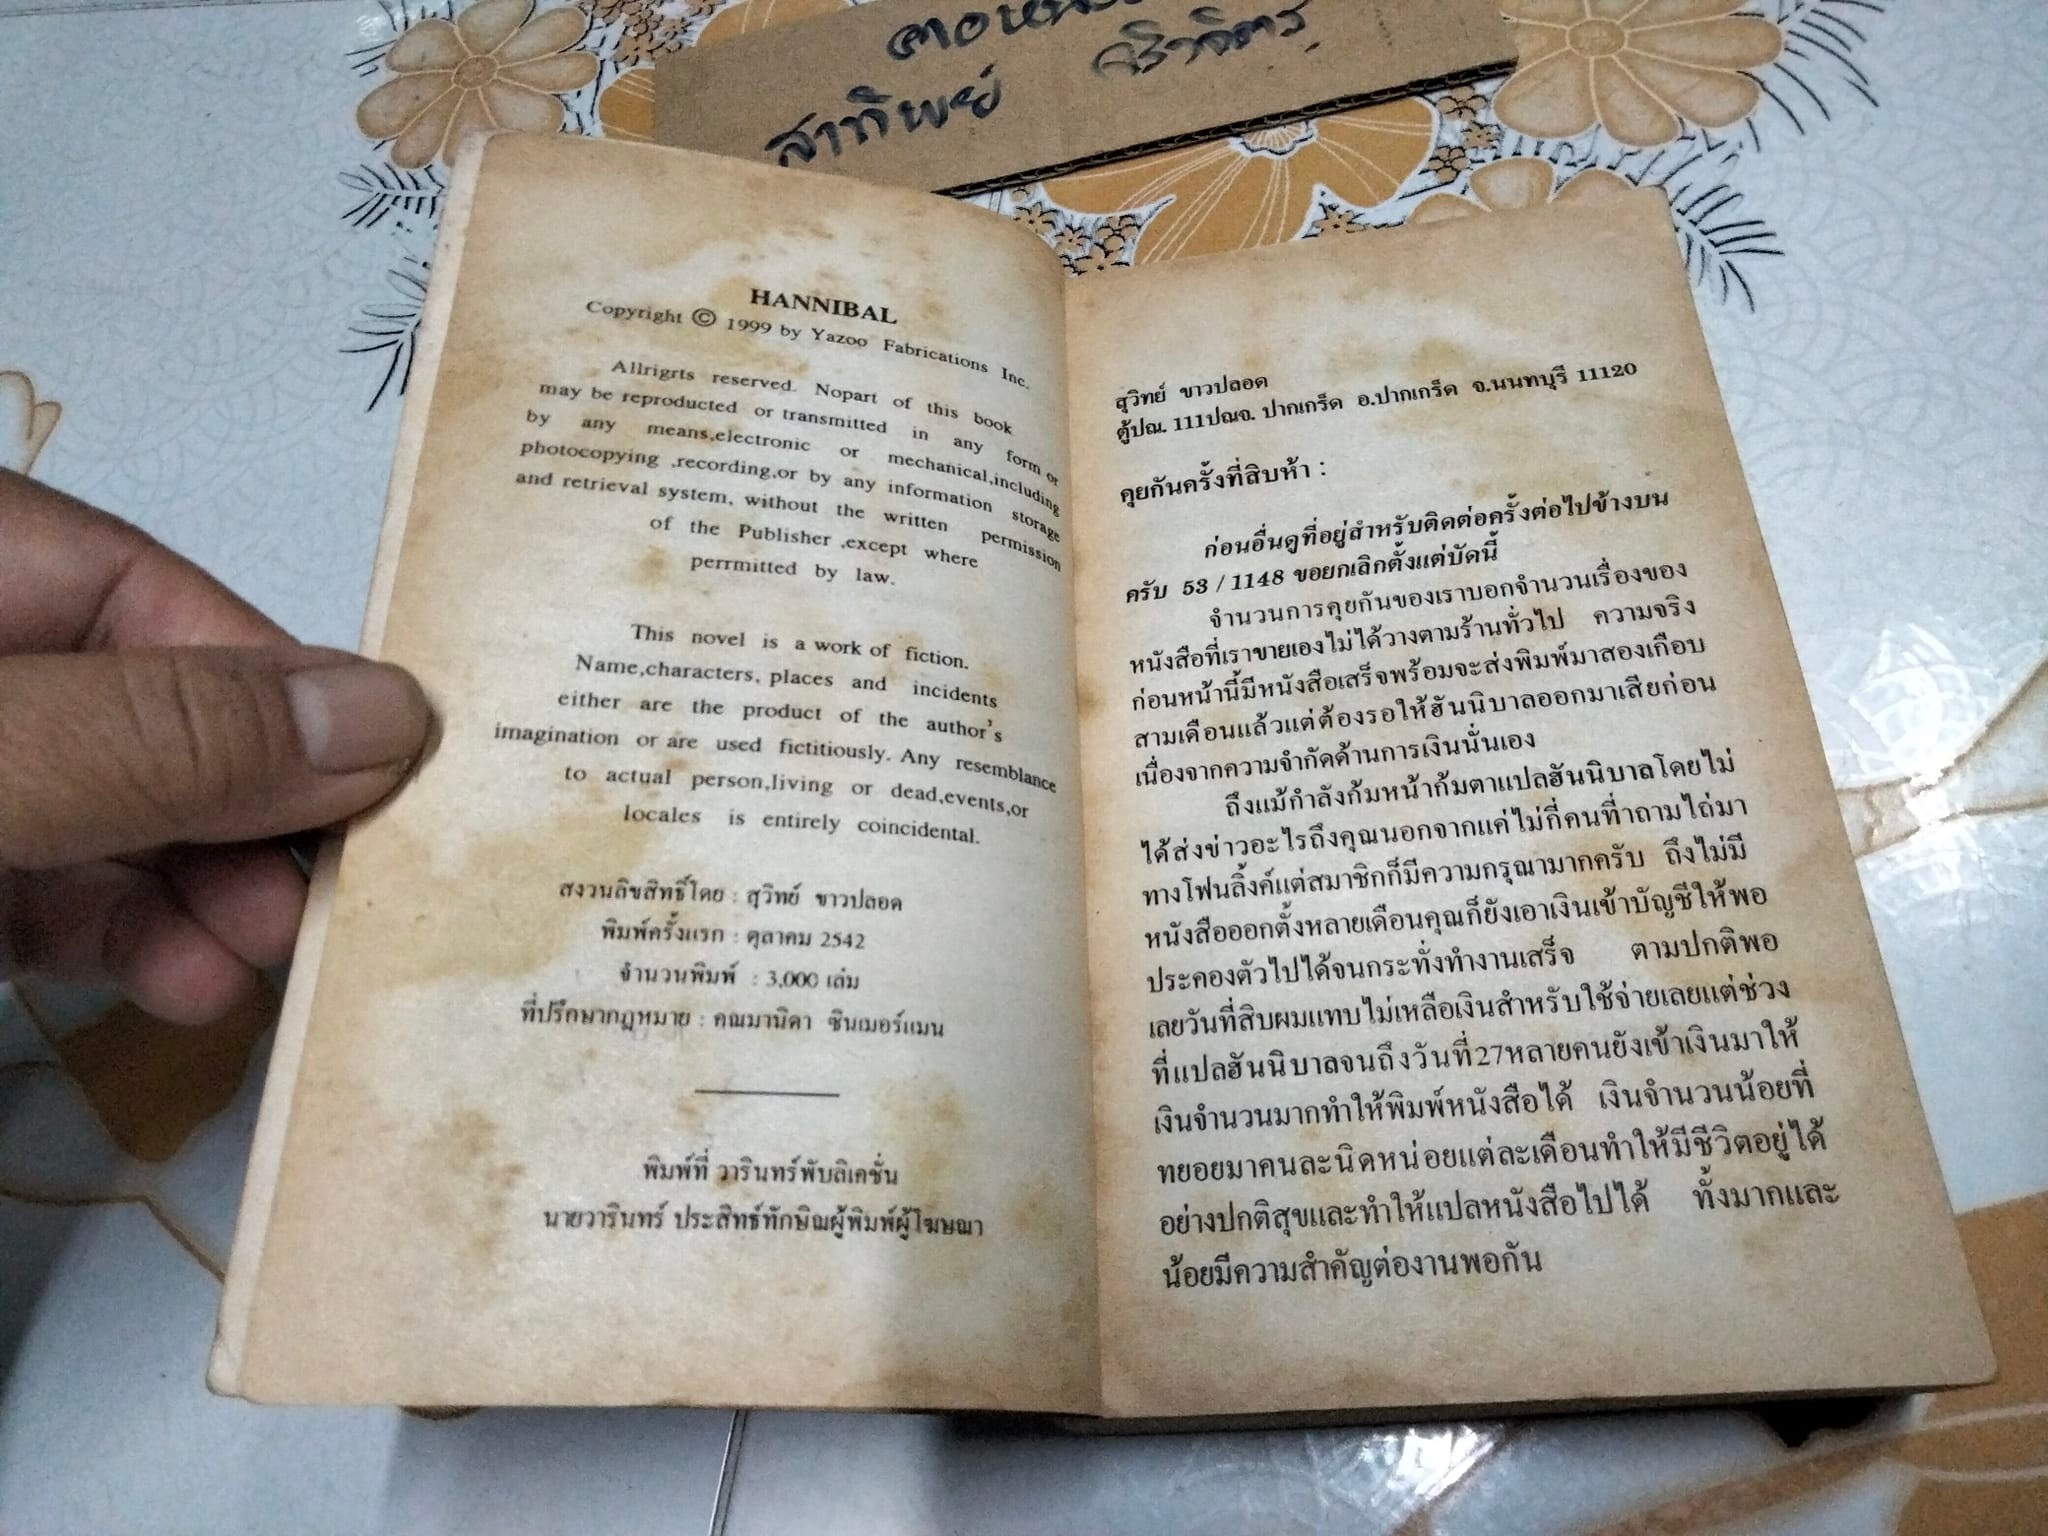 สาทิพย์
HANNIBAL
Copyright © 1999 by Yazoo Fabrications Inc.
Allrigrts reserved. Nopart of this book
may be reproducted or transmitted in any form or
by any means,electronic or mechanical,including
photocopying ,recording,or by any information storage
and retrieval system, without the written permission
of the Publisher ,except where
perrmitted by law.
This novel is a work of fiction.
Name,characters, places and incidents
either are the product of the author's
imagination or are used fictitiously. Any resemblance
to actual person,living or dead,events,or
locales is entirely coincidental.
สงวนลิขสิทธิ์โดย : สุวิทย์ ขาวปลอด
พิมพ์ครั้งแรก : ตุลาคม 2542
จำนวนพิมพ์ : 3,000 เล่ม
ที่ปรึกษากฎหมาย : คณมานิดา ซินเมอร์แมน
พิมพ์ที่ วารินทร์พับลิเคชั่น
นายวารินทร์ ประสิทธ์ทักษิณผู้พิมพ์ผู้โฆษณา
สุวิทย์ ขาวปลอด
ตู้ปณ. 111ปณจ. ปากเกร็ด อ.ปากเกร็ด จ.นนทบุรี 11120
คุยกันครั้งที่สิบห้า :
ก่อนอื่นดูที่อยู่สำหรับติดต่อครั้งต่อไปข้างบน
ครับ 53 / 1148 ขอยกเลิกตั้งแต่บัดนี้
จำนวนการคุยกันของเราบอกจำนวนเรื่องของ
หนังสือที่เราขายเองไม่ได้วางตามร้านทั่วไป ความจริง
ก่อนหน้านี้มีหนังสือเสร็จพร้อมจะส่งพิมพ์มาสองเกือบ
สามเดือนแล้วแต่ต้องรอให้ฮันนิบาลออกมาเสียก่อน
เนื่องจากความจำกัดด้านการเงินนั่นเอง
ถึงแม้กำลังก้มหน้าก้มตาแปลฮันนิบาลโดยไม่
ได้ส่งข่าวอะไรถึงคุณนอกจากแค่ไม่กี่คนที่ถามไถ่มา
ทางโฟนลิ้งค์แต่สมาชิกก็มีความกรุณามากครับ ถึงไม่มี
หนังสือออกตั้งหลายเดือนคุณก็ยังเอาเงินเข้าบัญชีให้พอ
ประคองตัวไปได้จนกระทั่งทำงานเสร็จ ตามปกติพอ
เลยวันที่สิบผมแทบไม่เหลือเงินสำหรับใช้จ่ายเลยแต่ช่วง
ที่แปลฮันนิบาลจนถึงวันที่27หลายคนยังเข้าเงินมาให้
เงินจำนวนมากทำให้พิมพ์หนังสือได้ เงินจำนวนน้อยที่
ทยอยมาคนละนิดหน่อยแต่ละเดือนทำให้มีชีวิตอยู่ได้
อย่างปกติสุขและทำให้แปลหนังสือไปได้ ทั้งมากและ
น้อยมีความสำคัญต่องานพอกัน